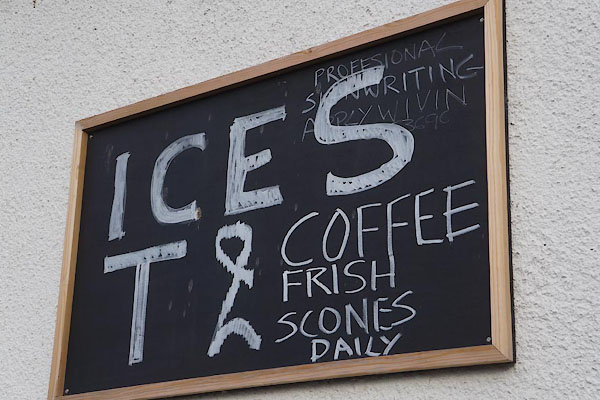 PROFESIONAL
SIGNWRITING
APPLY WIVIN
ICES
T & COFFEE
FRISH
SCONES
DAILY